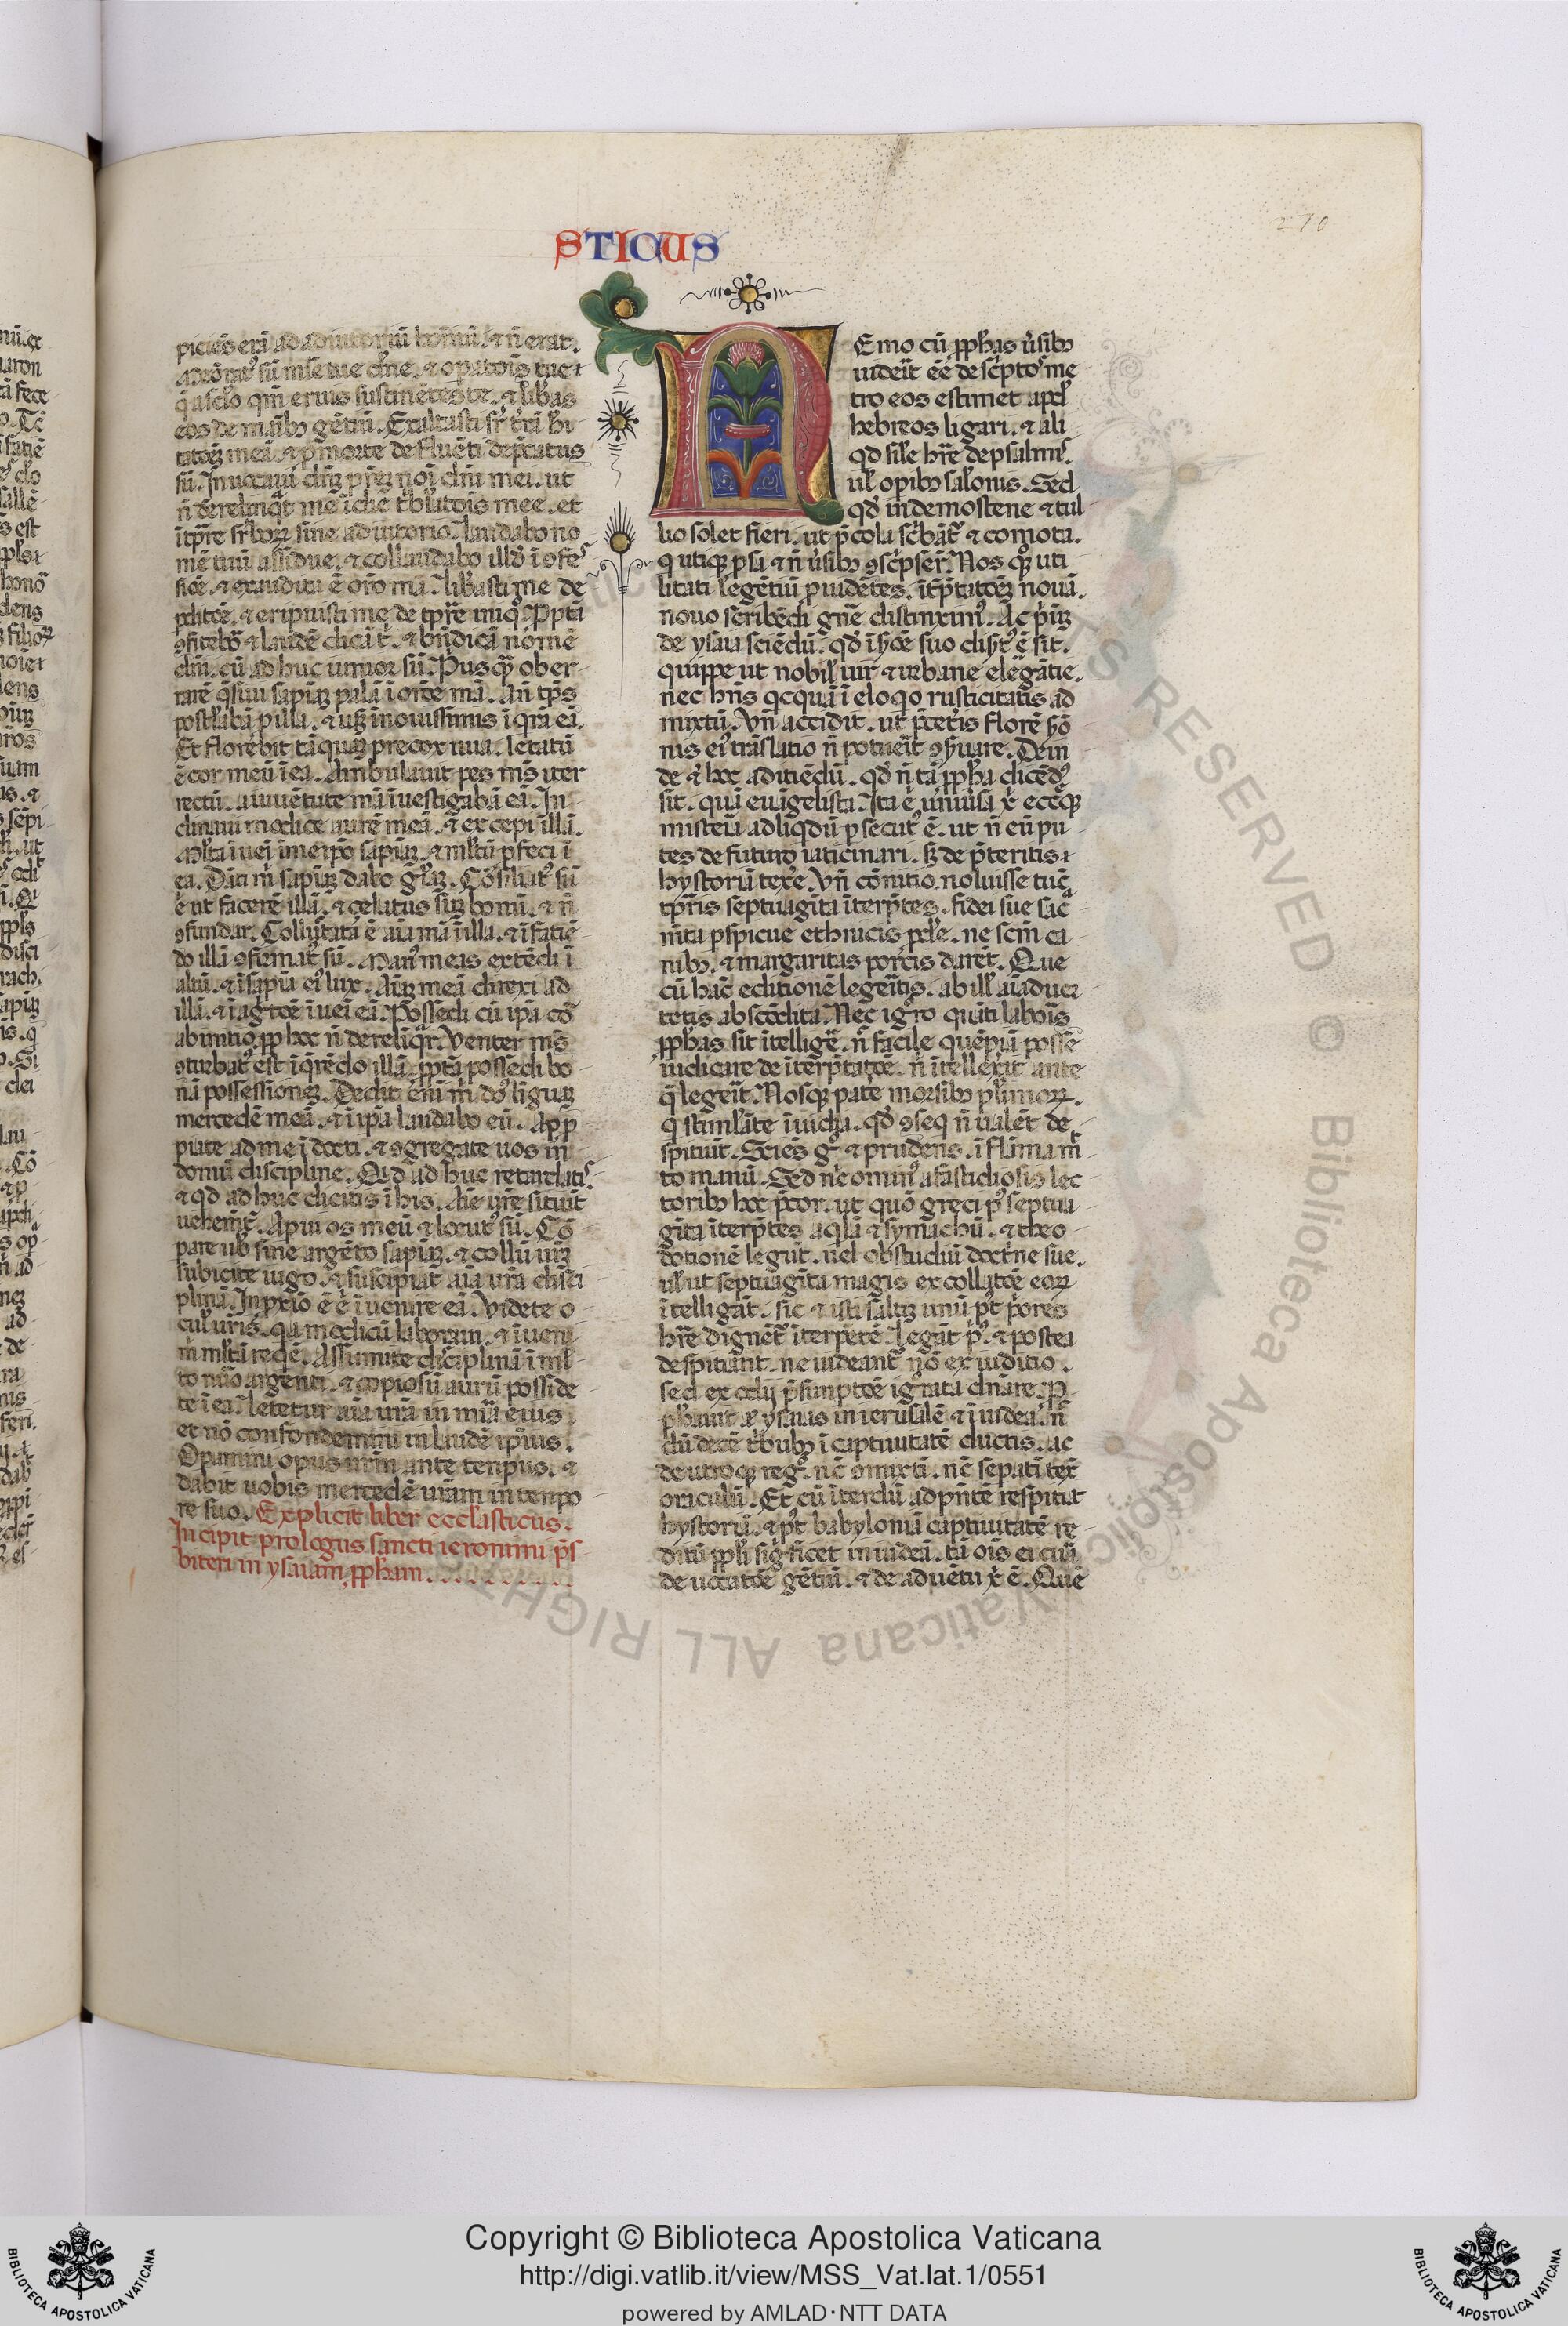 270
STICUS
piciēs erā ad adiutoriū hoīnū. ⁊ ñ erat.
Meōrat' sū mīe tue dn̄e. ⁊ opatōīs tue
q̄ a sclo qm̄ eruis sustinētes te. ⁊ lib̄as
eos de maībȝ gētiū. Exaltasti sr̄ t̄rā hī
tatōȩ meā. ⁊ ꝓ morte defluēti depcatus
sū. In uocaui dn̄ȝ p̄rēȝ dn̄i mei. ut
ñ derelinqt me ī die t̄blatōis mee. et
ī tp̄re sr̄boꝝ sine adiutorio. laudabo no
mē tuū assidue. ⁊ collaudabo illd̄ ī ofes
siōe. ⁊ exaudita ē orō mā. lib̄asti me de
ꝑditōe. ⁊ eripuisti me de tp̄re iniqo. Ppt̄ā
ꝯfitebōr ⁊ laudē dicā t̄. ⁊ bn̄dicā nomē
dn̄i. cū ad huc iunior sū. Pusqꝫ ober
rarē q̄siui sapiaȝ palā ī orōe mā. An̄ tp̄s
postlabā ꝓ illa. ⁊ usqȝ in nouissimis īqrā eā.
Et florebit tāquaȝ precox uua. letatū
ē cor meū ī ea. Ambulauit pes m̄s iter
rectū. a iuuētute mā īuestigabā eā. In
clinaui modice aurē meā. ⁊ excepi illā.
Mlta īueī ī meipo sapiāȝ. ⁊ mltū ꝓfeci ī
ea. Dāti m̄ sapiāȝ dabo glāȝ. Cōsiliat' sū
ē ut facere illā. ⁊ çelatus suȝ bonū. ⁊ ñ
ꝯfundar. Collūtata ē aīa mā ī illa. ⁊ ī fatiē
do illā ꝯfirmat' sū. Man' meas extēdi ī
altū. ⁊ ī sapīa ei' lux. Aīāȝ meā direxi ad
illā. ⁊ ī agtōe īueī eā. Possēdi cū ipā cor
ab initio. ꝓp hoc ñ derelīqr. Venter m̄s
ꝯturbat' est ī q̄rēdo illā. ꝓpt̄ā possēdi bo
nā possessioneȝ. Dedit eni m̄ do' līguaȝ
mercedē meā. ⁊ ī ipā laudabo eū. App̄
piate ad me īdocti. ⁊ ꝯgregate uos in
domū discipline. Qd ad huc retardati'
⁊ qd ad huc dicitis ī his. Aīe ur̄e sitiūt
uehem̄t̄. Apui os meū ⁊ locut' sū. Cō
pare ub̄ sine argēto sapiaȝ. ⁊ collū ur̄ȝ
subicite iugo. ⁊ suscipiat aīa ur̄a disci
plinā. In ꝓxīo ē ē īuenire eā. Videte o
cul' uris. qa modicū laboraui. ⁊ īueni
m̄ mltā reqē. Assumite disciplinā ī ml
to nūo argenti. ⁊ copiosū aurū posside
te ī ea. letetur aīa ur̄a in mīa eius.
et nō confondemini in laudē ipius.
Opamini opus ur̄m ante tempus. ⁊
dabit uobis mercedē ur̄am in tempo
re suo. Explicit liber eccl̄asticus.
Incipit prologus sancti ieronimi p̄s
biteri in ysaiam ꝓpham
NEmo cū ꝓphas ūsibȝ
uideīt ēē descptos' me
tro eos estimet apd'
hebreos ligari. ⁊ ali
qd sīle hr̄e de psalmis.
ul' opibȝ salōnis. Sed
qd' in demostene ⁊ tul
lio solet fieri. ut p̄ cola scbāt' ⁊ comota.
q utiqȝ psa ⁊ ñ ūsibȝ ꝯscp̄ser̄. Nos qȝ uti
litati legētiū ꝓuidētes. īt̄p̄tatōeȝ nouā.
nouo scribēdi gn̄e distinxim'. Ac pīȝ
de ysaia sciēdū. qd' ī s̄mōe suo disert' ē sit.
quippe ut nobil' uir ⁊ urbane elegātie.
nec hn̄s qcquā ī eloqo rusticitatis ad
mixtū. Vn̄ accidit. ut p̄ ceteris florē s̄mō
nis ei' trāslatio ñ potuerit ꝯs̄uare. Dein
de ⁊ hoc aditiēdū. qd' ñ tā ꝓpha dicēd'
sit. quā euāgelista. Ita ē uniūsa xi ecceqȝ
misteria ad liqdū ꝓsecut' ē. ut ñ eū pu
tes de futuro uaticinari. sȝ de p̄teritis
hystoriā texe. Vn̄ cōnitio. noluisse tūc
tp̄ris septuagīta īterp̄tes. fidei sue sac̄
mīta ꝑspicue ethnicis ꝓde. ne scm̄ ca
nibȝ. ⁊ margaritas porcis darēt. Que
cū hāc editionē legeritis. ab ill' aīaduer
tetis abscōdita. Nec igro quāti laboris
ꝓphas sit ītelligē. ñ facile quēpiā posse
iudicare de īterp̄tatōe. ñ ītellexit ante
q̄ legeīt. Nos qȝ patē morsibȝ plimoꝝ.
q stimlāte īuidia. qd' ꝯseq ñ ualēt de
spitiūt. Sciēs g' ⁊ prudēns. ī flāmam
to manū. Sed nc̄ omin' a fastidiosis lec
toribȝ hoc p̄cor. ut quō greci p' septua
gīta īterp̄tes aqlā ⁊ symachū. ⁊ theo
dotionē legūt. uel ob studiū doct̄ne sue.
ul' ut septuagīta magis ex collatōe eoꝝ
ītelligāt. sic ⁊ isti saltīȝ unū p't p̄ores
hr̄e dignēt' īterp̄tē. legāt p'. ⁊ postea
despitiant. ne uideant' nō ex iuditio.
sed ex odij p̄sumptōe igrata dn̄are. P
phauit at ysaias in ierusalē ⁊ ī iudea. n̄
dū decē t̄bubȝ ī captiuitatē ductis. ac
de utroqȝ reg'. nc̄ ꝯmixti. nc̄ separatī tex̄
oraculū. Et cū īterdū ad p̄ntē respitiat
hystoriā. ⁊ p't babyloniā captiuitatē re
ditū ppli sig'ficet in iudeā. tā oīs ei cura
de uocatōe gētiū. ⁊ de aduētu xi ē. Quē
Biblioteca Apostolica Vaticana ALL RIGHTS RESERVED ©
Copyright © Biblioteca Apostolica Vaticana
http://digi.vatlib.it/view/MSS_Vat.lat.1/0551
powered by AMLAD·NTT DATA
BIBLIOTECA APOSTOLICA VATICANA
BIBLIOTECA APOSTOLICA VATICANA